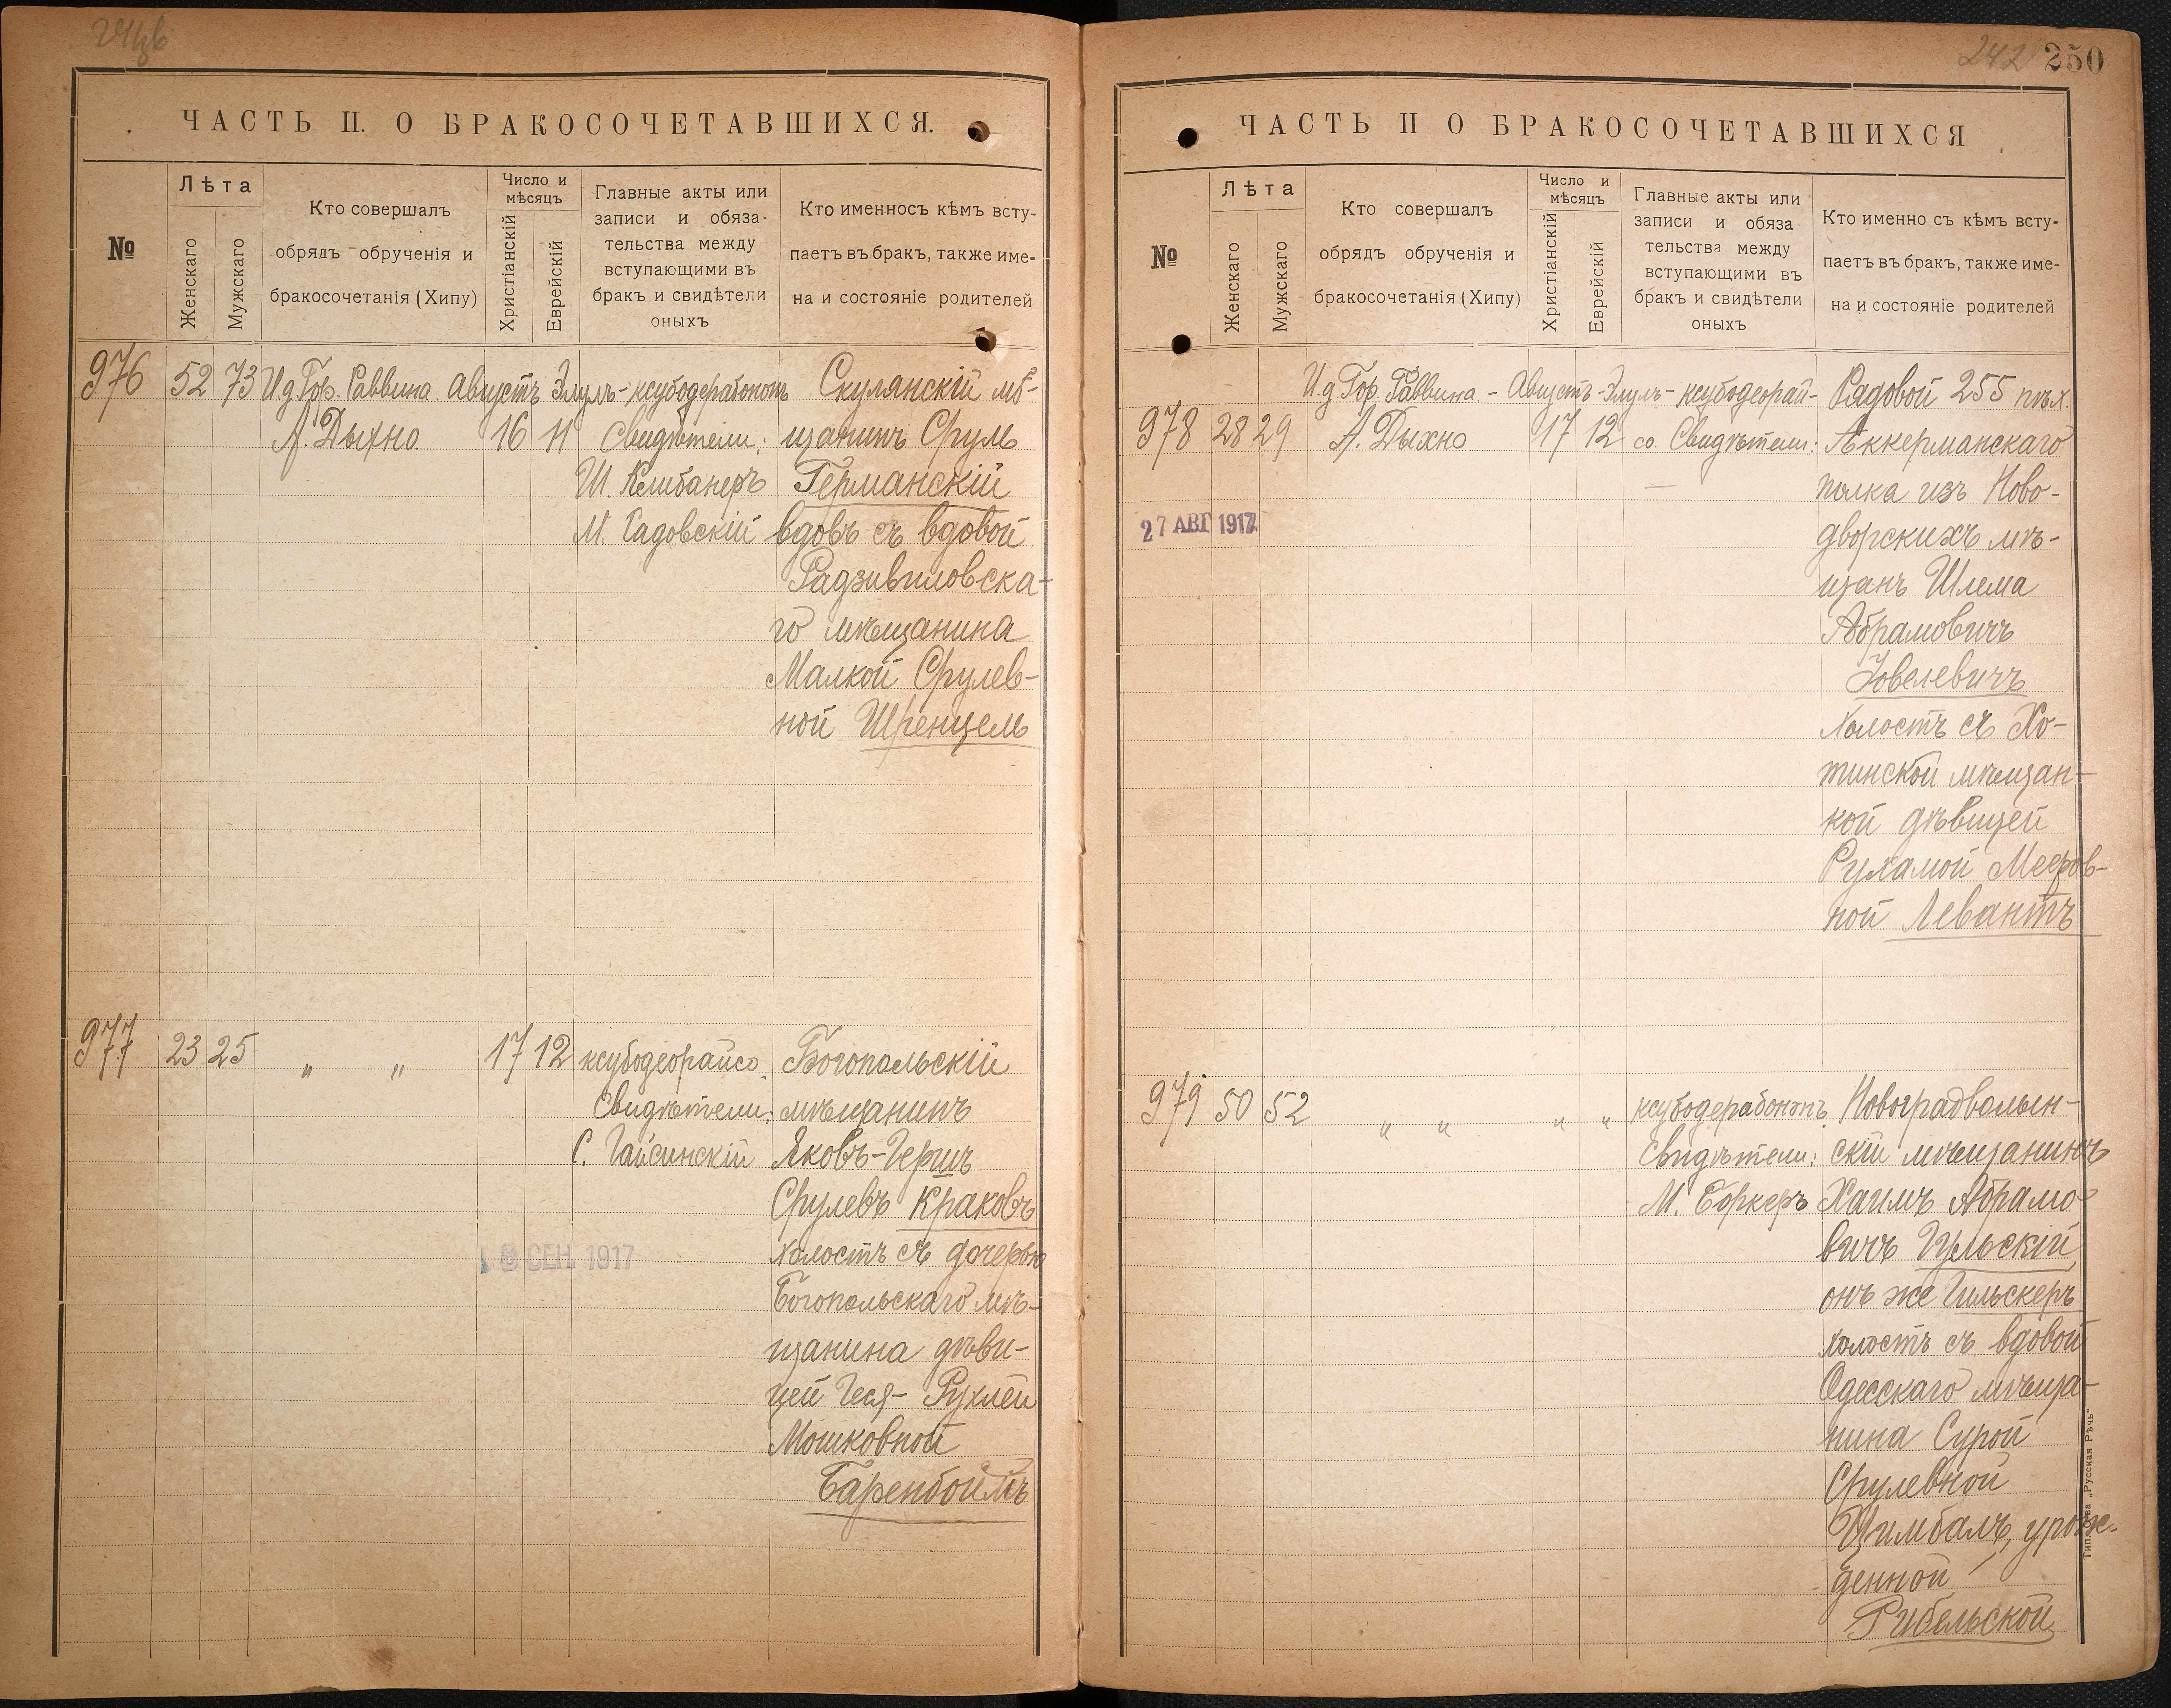 ЧАСТЬ II. О БРАКОСОЧЕТАВШИХСЯ.
№
Лѣта
Женскаго
Мужскаго
Кто совершалъ
обрядъ обрученія и
бракосочетанія (Хипу)
Число и
мѣсяцъ
Христіанскій
Еврейскій
Главные акты или
записи и обяза-
тельства между
вступающими въ
бракъ и свидѣтели
оныхъ
Кто именносъ кѣмъ всту-
паетъ въ бракъ, также име-
на и состояніе родителей
976 52 73 И.д. Гор. Раввина Августъ Элулъ
А. Дыхно 16 11
Свидѣтели:
Ш. Клибанеръ
М. Садовскій
Скулянскій мѣ-
щанинъ Сруль
Германскій
вдовъ съ вдовой
Радзивиловска-
го мѣщанина
Малкой Срулев-
ной Шренцель
977 23 25 " " 17 12 ксубодеорайсо
Свидѣтели:
С. Гайсинскій
Богопольскій
мѣщанинъ
Яковъ-Гершъ
Срулевъ Краковъ
холостъ съ дочерью
Богопольскаго мѣ-
щанина дѣви-
цей Геся-Рухлей
Мошковной
Баренбоймъ
СЕН. 1917
242 250
ЧАСТЬ II О БРАКОСОЧЕТАВШИХСЯ
№
Лѣта
Женскаго
Мужскаго
Кто совершалъ
обрядъ обрученія и
бракосочетанія (Хипу)
Число и
мѣсяцъ
Христіанскій
Еврейскій
Главные акты или
записи и обяза
тельства между
вступающими въ
бракъ и свидѣтели
оныхъ
Кто именно съ кѣмъ всту-
паетъ въ бракъ, также име-
на и состояніе родителей
И.д. Гор. Раввина - Августъ - Элулъ - ксубодеорай-
978 28 29 А. Дыхно 17 12 со. Свидѣтели:
27 АВГ 1917
Рядовой 255 пѣх.
Аккерманскаго
полка изъ Ново-
дворскихъ мѣ-
щанъ Шлема
Абрамовичъ
Ховелевичъ
холостъ съ Хо-
тинской мѣщан-
кой дѣвицей
Рухамой Мееров-
ной Левантъ
979 50 52 " " " "
Свидѣтели:
М. Боркеръ
Новоградволын-
скій мѣщанинъ
Хаимъ Абрамо-
вичъ Гульскій,
онъ же Гильскеръ
холостъ съ вдовой
Одесскаго мѣща-
нина Сурой
Срулевной
Цимбалъ, урож-
денной
Рибельской
Тип. Т-ва „Русская Рѣчь“